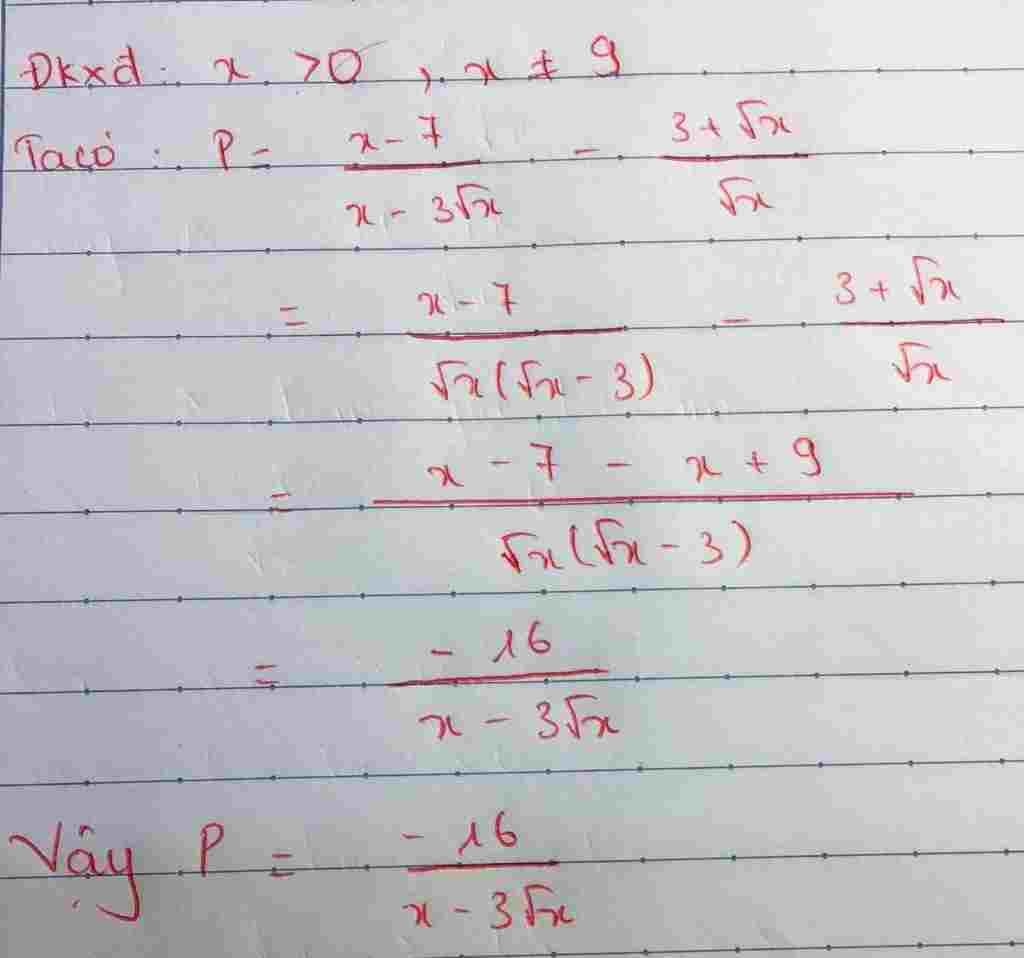 Đkxđ: x > 0, x ≠ 9
Ta có: P = \frac{x - 7}{x - 3√x} - \frac{3 + √x}{√x}
= \frac{x - 7}{√x(√x - 3)} - \frac{3 + √x}{√x}
= \frac{x - 7 - x + 9}{√x(√x - 3)}
= \frac{-16}{x - 3√x}
Vậy P = \frac{-16}{x - 3√x}